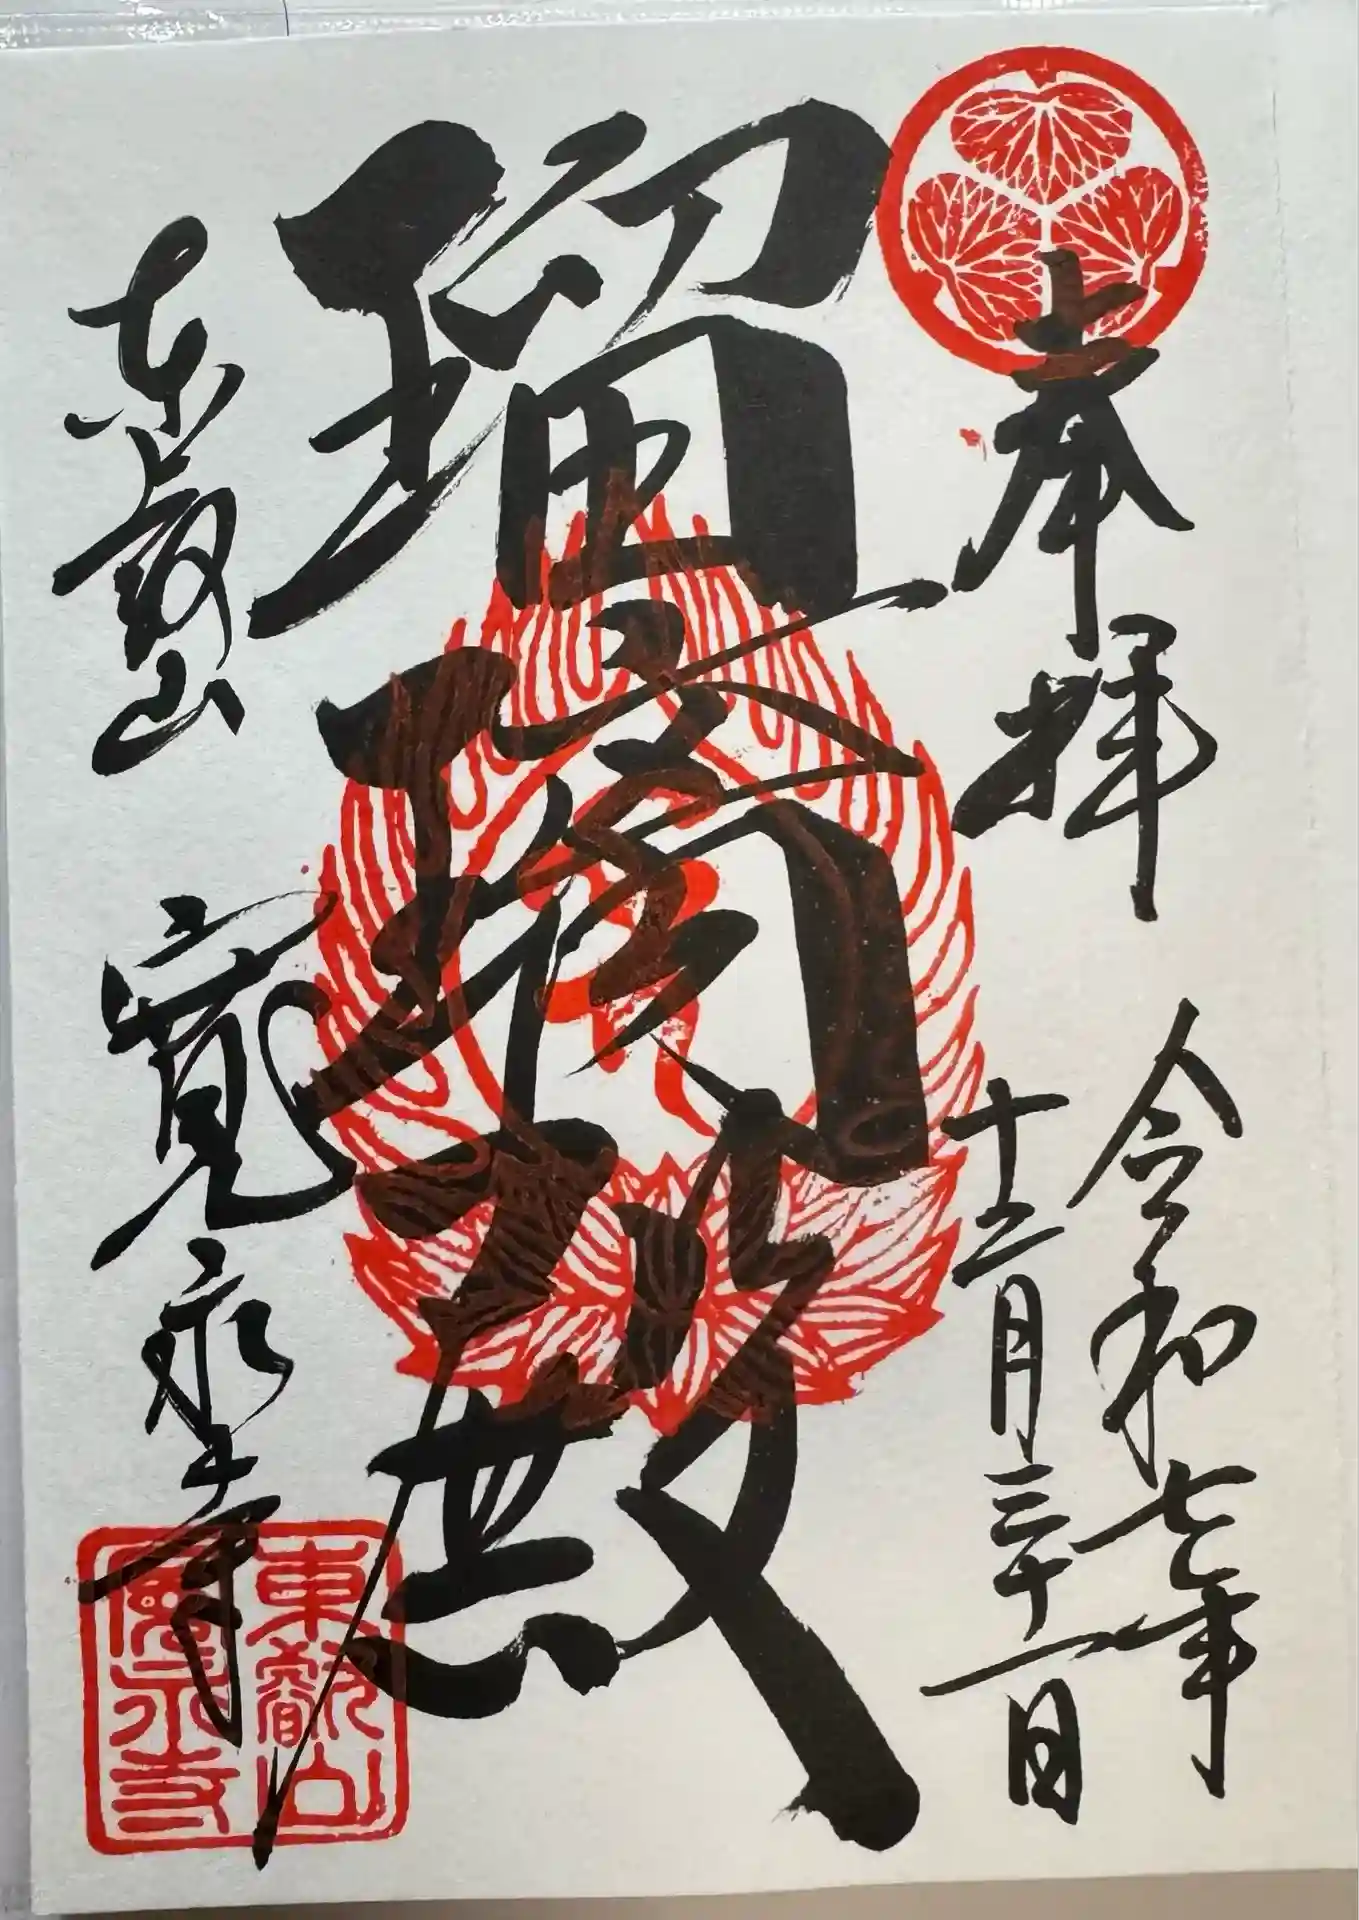 奉拜
令和七年
十二月三十一日
瑠璃殿
東叡山
寛永寺
東叡山
寛永寺